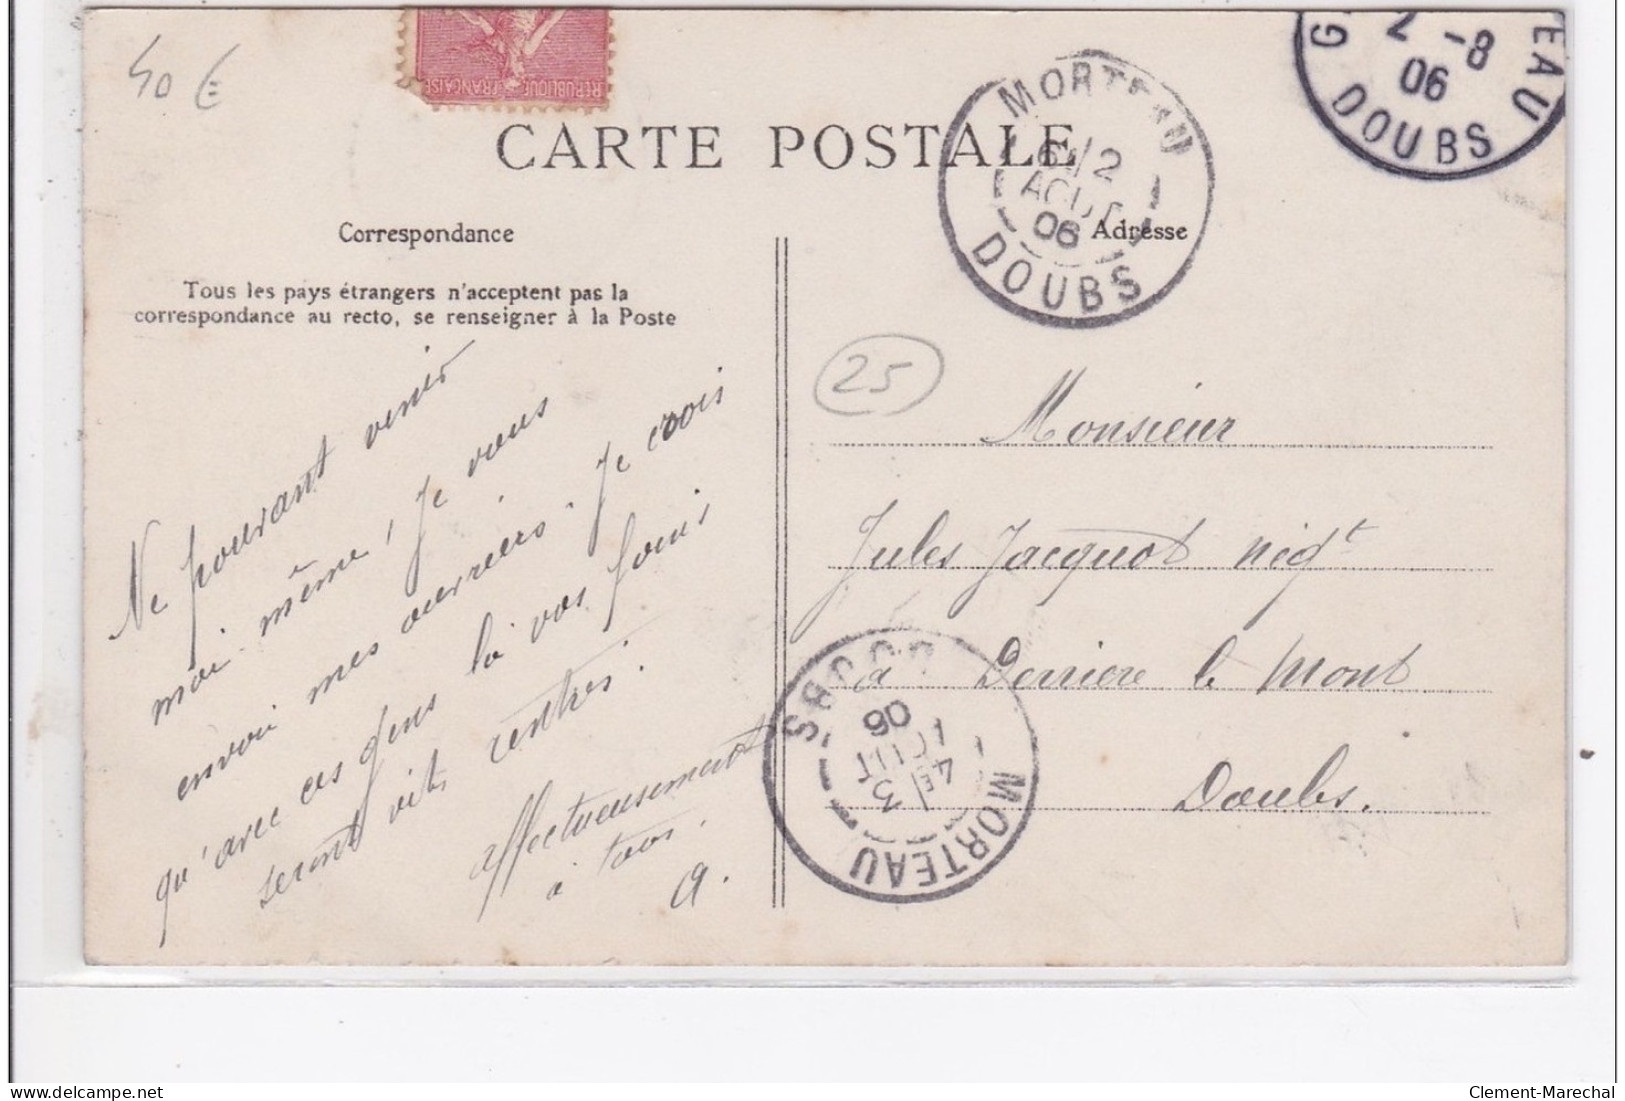 40 €
REPUBLIQUE FRANÇAISE
CARTE POSTALE
MORTEAU
2
AOUT
06
DOUBS
2 -8
06
DOUBS
TEAU
Correspondance
Adresse
Tous les pays étrangers n'acceptent pas la
correspondance au recto, se renseigner à la Poste
25
Ne pouvant venir
moi même, je vous
envoi mes ouvriers. Je crois
qu'avec ces gens là vos foins
seront vite rentrés.
affectueusement
à tous.
A.
Monsieur
Jules Jacquot négt
à Derrière le Mont
Doubs.
MORTEAU
3
AOUT
06
DOUBS
Clement-Marechal